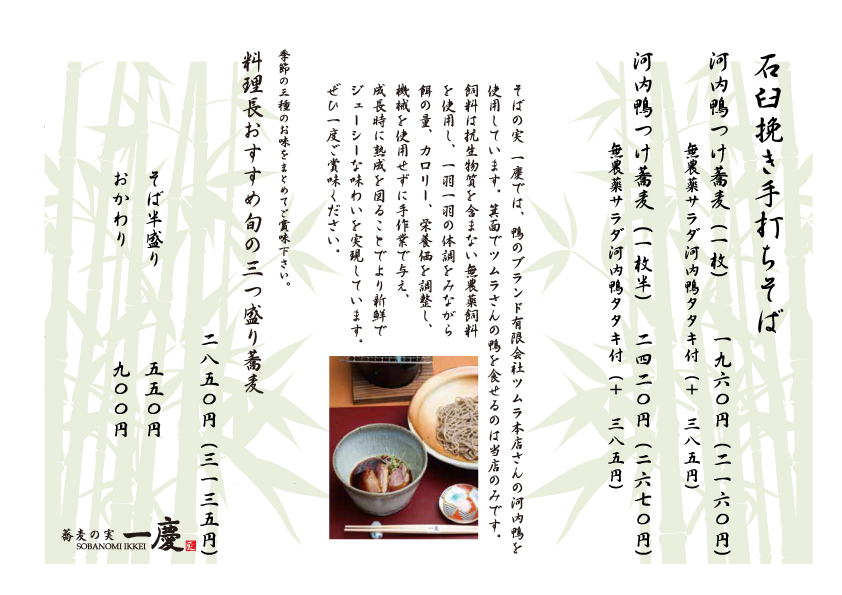 石臼挽き手打ちそば
河内鴨つけ蕎麦（一枚） 一九六〇円（二一六〇円）
無農薬サラダ河内鴨タタキ付（＋ 三八五円）
河内鴨つけ蕎麦（一枚半） 二四二〇円（二六七〇円）
無農薬サラダ河内鴨タタキ付（＋ 三八五円）
そばの実 一慶では、鴨のブランド有限会社ツムラ本店さんの河内鴨を
使用しています。箕面でツムラさんの鴨を食せるのは当店のみです。
飼料は抗生物質を含まない無農薬飼料
を使用し、一羽一羽の体調をみながら
餌の量、カロリー、栄養価を調整し、
機械を使用せずに手作業で与え、
成長時に熟成を図ることでより新鮮で
ジューシーな味わいを実現しています。
ぜひ一度ご賞味ください。
季節の三種のお味をまとめてご賞味下さい。
料理長おすすめ旬の三つ盛り蕎麦
二八五〇円（三一三五円）
そば半盛り 五五〇円
おかわり 九〇〇円
蕎麦の実 一慶
SOBANOMI IKKEI